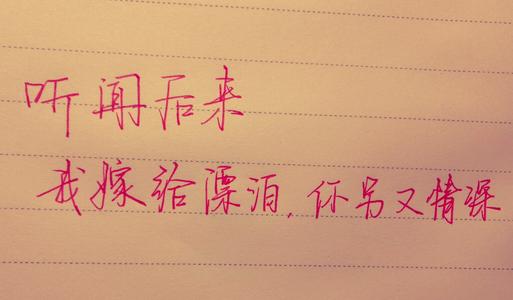 听闻后来
我嫁给漂泊,你另又情深